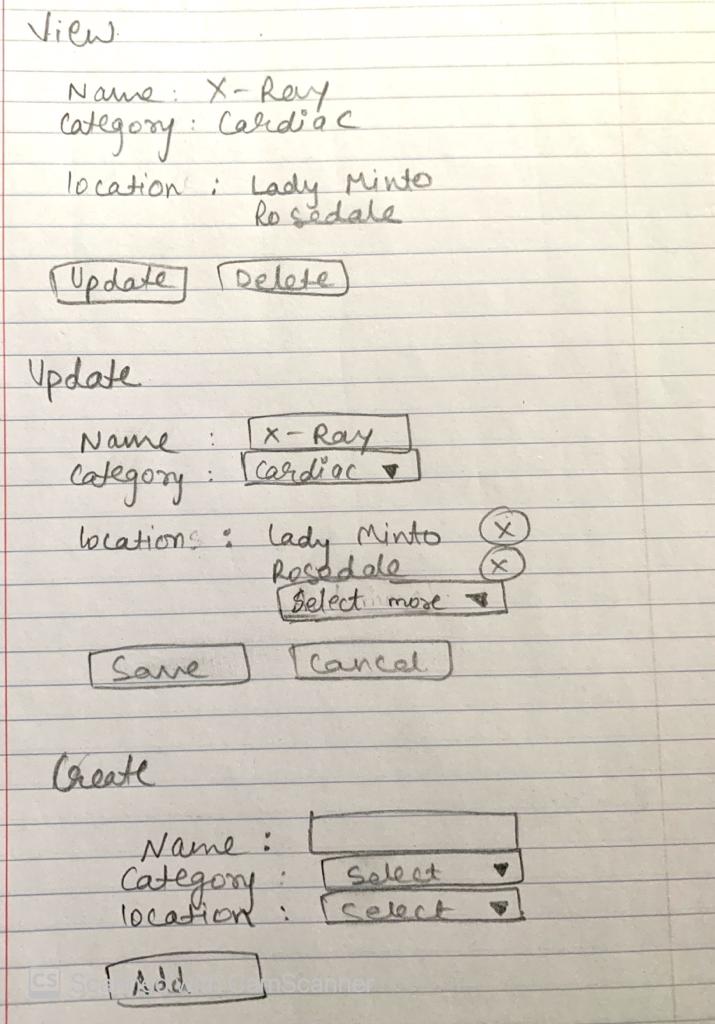 View
Name : X-Ray
Category : Cardiac
location : Lady Minto
Rosedale
Update Delete
Update
Name : X-Ray
Category : Cardiac ▼
locations : Lady Minto X
Rosedale X
Select more ▼
Save Cancel
Create
Name :
Category : Select ▼
location : Select ▼
Add
CS Scanned with CamScanner